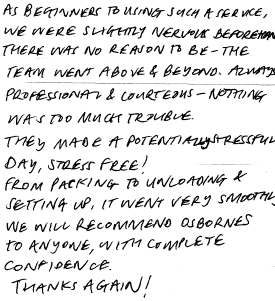 AS BEGINNERS TO USING SUCH A SERVICE,
WE WERE SLIGHTLY NERVOUS BEFOREHAN
THERE WAS NO REASON TO BE - THE
TEAM WENT ABOVE & BEYOND. ALWAYS
PROFESSIONAL & COURTEOUS - NOTHING
WAS TOO MUCH TROUBLE.
THEY MADE A POTENTIALLY STRESSFUL
DAY, STRESS FREE!
FROM PACKING TO UNLOADING &
SETTING UP, IT WENT VERY SMOOTHLY
WE WILL RECOMMEND OSBORNES
TO ANYONE, WITH COMPLETE
CONFIDENCE.
THANKS AGAIN!